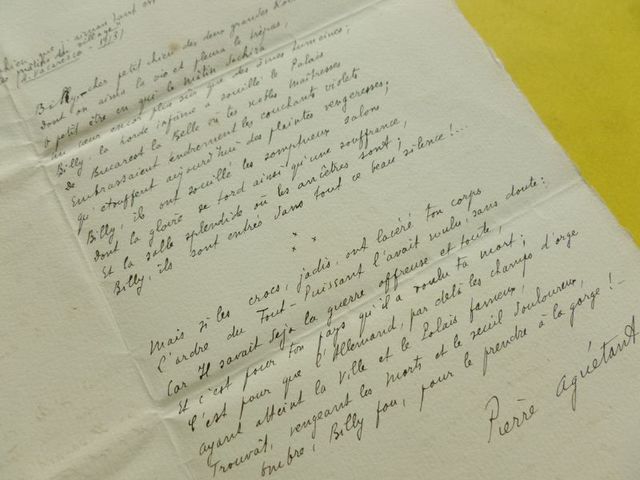 chien que j'aimais tant et
mâtins du village"
(H. Vacaresco - 1931)
Billy, cher petit chien des deux grandes
Dont on aima la vie et pleura le trépas,
O petit être en qui le mâtin déchira
Un cœur encor plus sûr que des âmes humaines;
Billy, la horde infâme a souillé le Palais
De Bucarest la Belle où tes nobles Maîtresses
Embrassaient tendrement les couchants violets
Qu'étouffent aujourd'hui des plaintes vengeresses;
Billy, ils ont souillé les somptueux salons
Dont la gloire se tord ainsi qu'une souffrance,
Et la salle splendide où les ancêtres sont;
Billy, ils sont entrés dans tout ce beau silence!...
* * *
Mais si les crocs, jadis, ont lacéré ton corps
L'ordre du Tout-Puissant l'avait voulu, sans doute:
Car Il savait déjà la guerre affreuse et toute,
Et c'est pour ton pays qu'il a voulu ta mort;
C'est pour que l'Allemand, par delà les champs d'orge
Ayant atteint la Ville et le Palais fameux,
Trouvât, vengeant les morts et le seuil douloureux,
Ombre, Billy fou, pour le prendre à la gorge!_
Pierre Aguétant